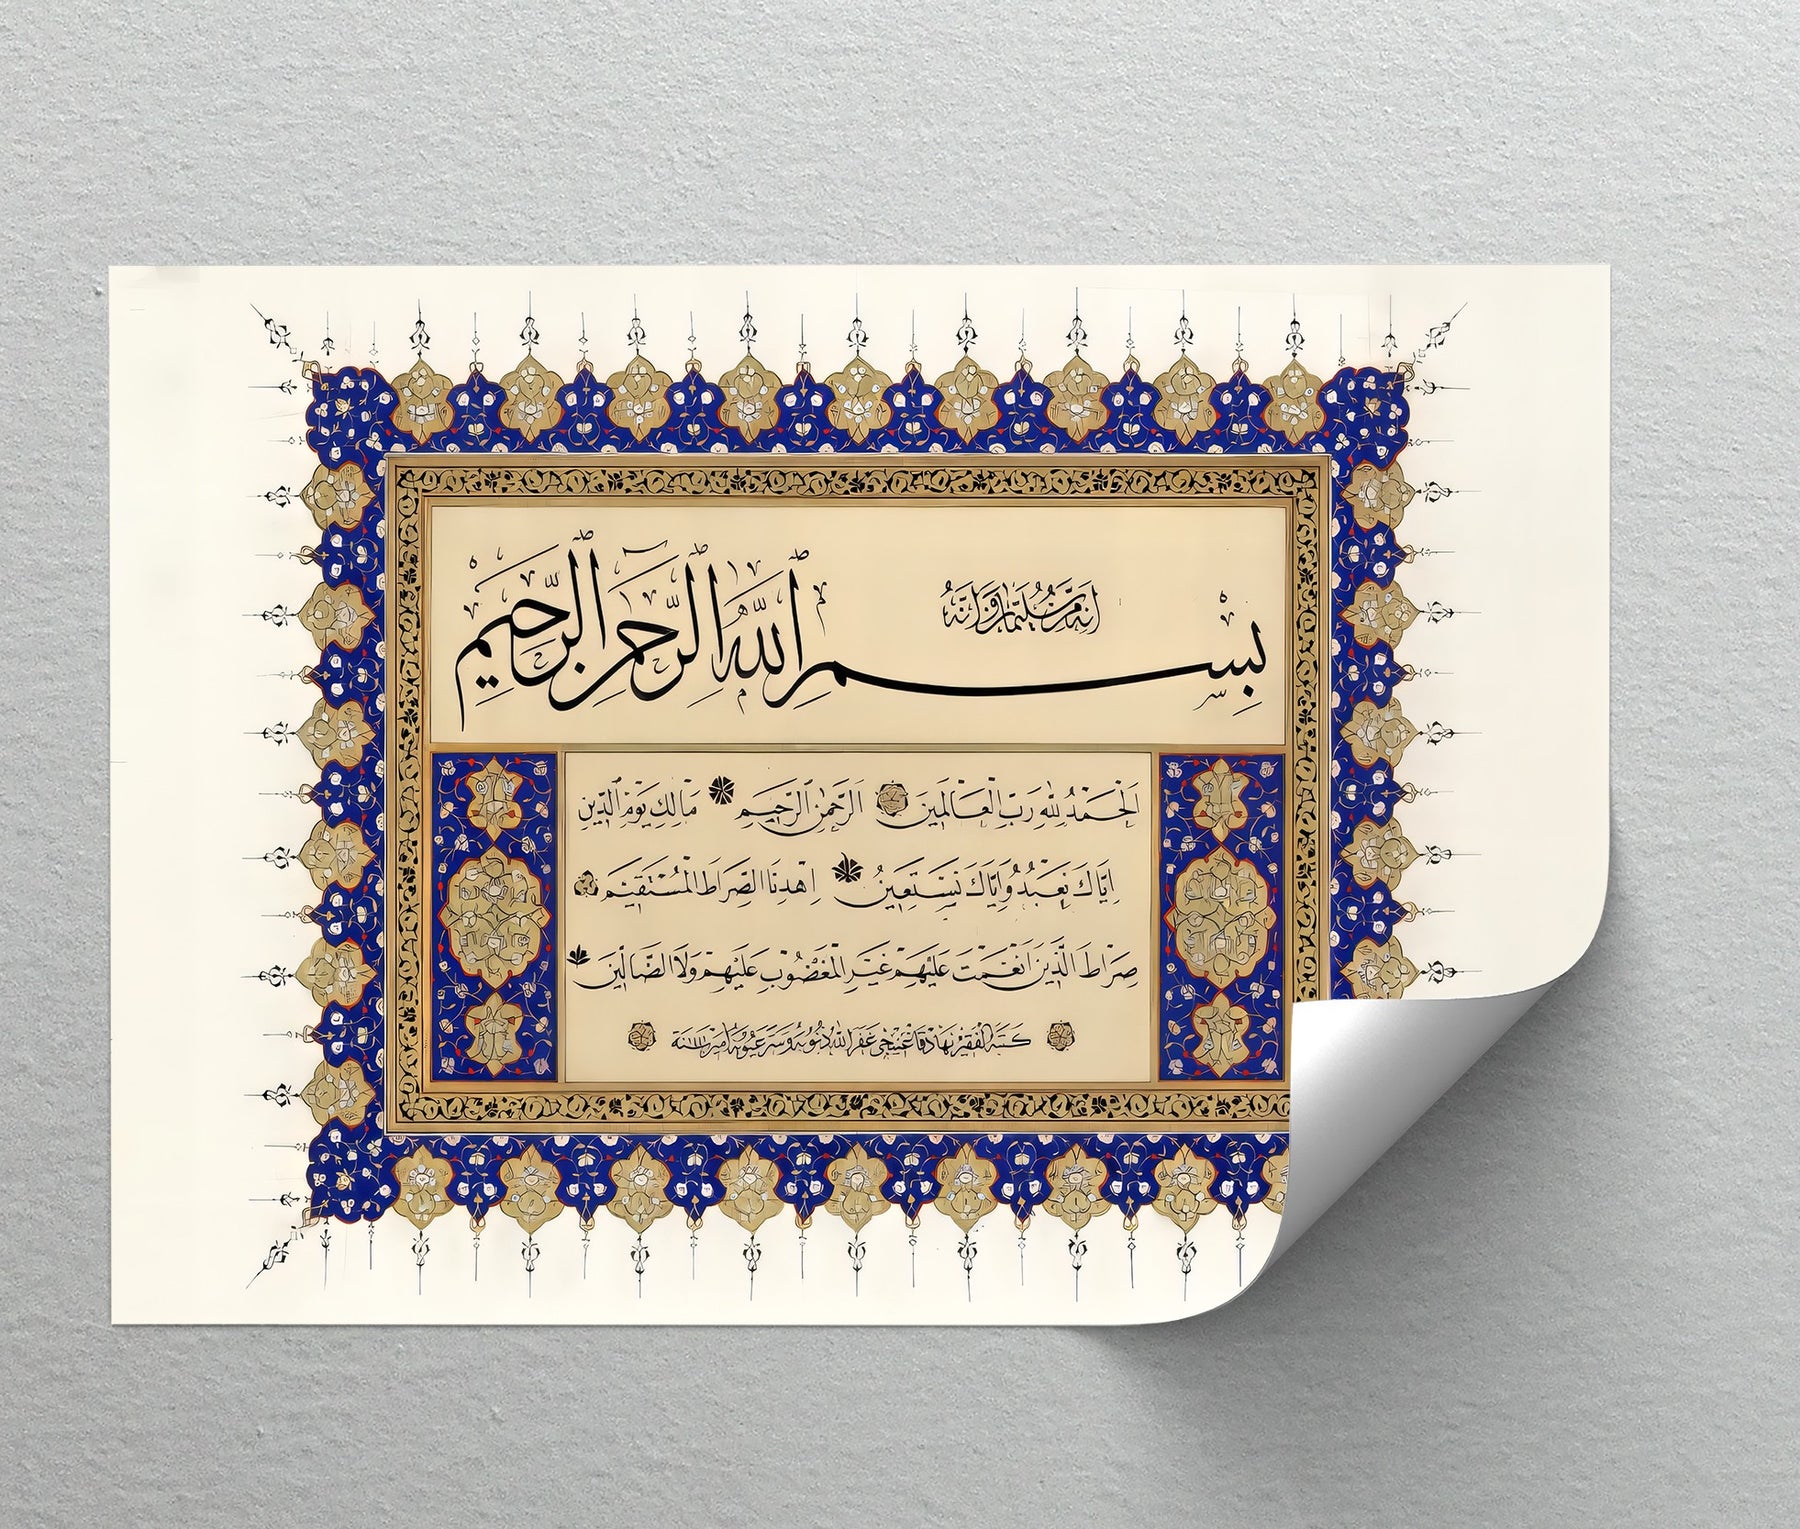 بِسْمِ اللهِ الرَّحْمٰنِ الرَّحِيمِ
اِنَّهُ مِنْ سُلَيْمَانَ وَاِنَّهُ
اَلْحَمْدُ لِلّٰهِ رَبِّ الْعَالَمِينَ اَلرَّحْمٰنِ الرَّحِيمِ مَالِكِ يَوْمِ الدِّينِ
اِيَّاكَ نَعْبُدُ وَاِيَّاكَ نَسْتَعِينُ اِهْدِنَا الصِّرَاطَ الْمُسْتَقِيمَ
صِرَاطَ الَّذِينَ اَنْعَمْتَ عَلَيْهِمْ غَيْرِ الْمَغْضُوبِ عَلَيْهِمْ وَلَا الضَّالِّينَ
كتبه الفقير غفر الله ذنوبه وستر عيوبه